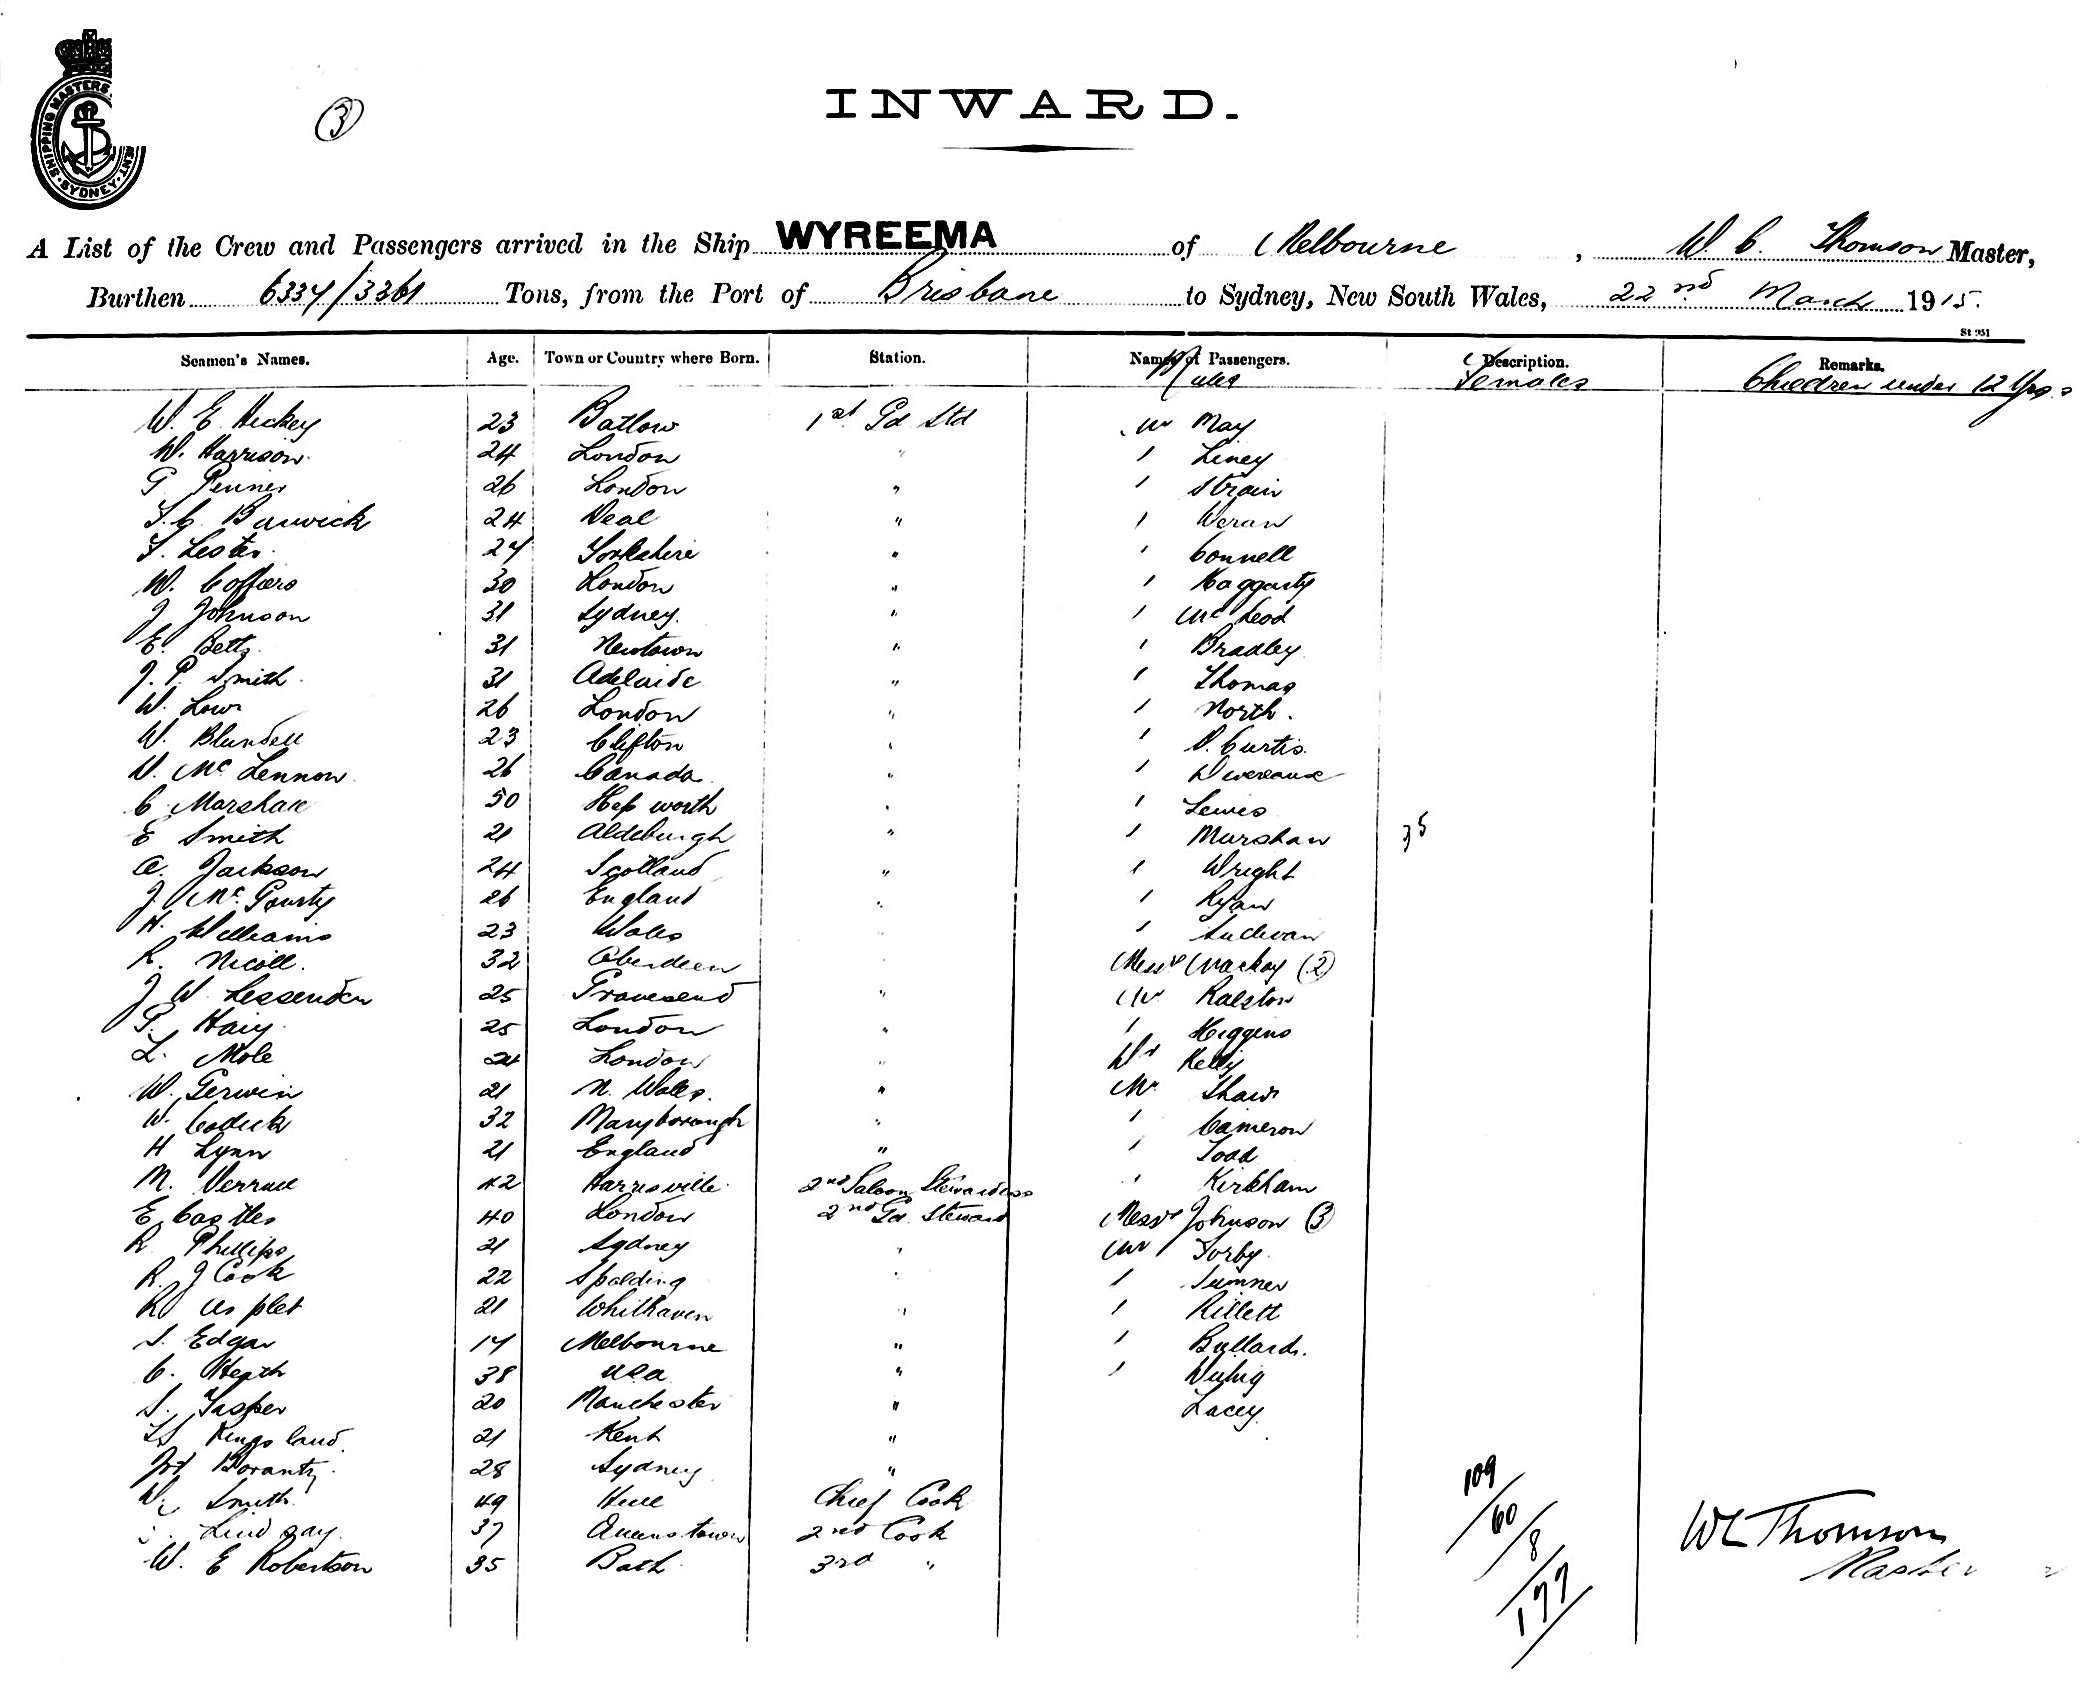 SHIPPING MASTERS
SYDNEY
3
INWARD.
A List of the Crew and Passengers arrived in the Ship WYREEMA of Melbourne, W. C. Thomson Master,
Burthen 6334/3361 Tons, from the Port of Brisbane to Sydney, New South Wales, 22nd March 1915.
St 951
Seamen's Names. Age. Town or Country where Born. Station. Names of Passengers. Description. Remarks.
Males Females Children under 12 Yrs
W. E. Hickey 23 Batlow 1st Gd Std Mr May
W. Harrison 24 London " ' Liney
G Penner 26 London " ' Strain
Barwick 24 Deal " '
F. Lester 27 Yorkshire " ' Connell
W. 30 London " ' Haggarty
J Johnson 31 Sydney. " ' McLeod
E. Betts 31 Newtown " ' Bradley
J. P. Smith 31 Adelaide " ' Thomas
W. Low 26 London " ' North.
W. Blundell 23 Clifton " ' D. Curtis
Mc Lennon 26 Canada " ' Devereaux
C Marshall 50 Hepworth " ' Lewis
E Smith 21 Aldeburgh " ' Marshall 35
A. Jackson 24 Scotland " ' Wright
J. McGourty 26 England " ' Ryan
H. Williams 23 Wales ' Sullivan
R. Nicoll. 32 Aberdeen Messrs Mackay (2)
J W Lessenden 25 Gravesend " Mr Ralston
25 London " ' Higgins
L. Mole 24 London " Dr Kelly
W. Gerwin 21 N. Wales. " Mr Shaw
W. Codick 32 Maryborough " ' Cameron
H Lynn 21 England " ' Todd
M. Verrall 42 Harrisville 2nd Saloon Stewardess ' Kirkham
E Castles 40 London 2nd Gd. Steward Messrs Johnson (3)
R Phillips 21 Sydney " Mr Torby
R. J Cook 22 Spalding " ' Sumner
R 21 Whithaven " ' Rillett
S. Edgar 17 Melbourne " ' Bullard.
C. Heath 38 USA " '
S. Jasper 20 Manchester " Lacey
Kingsland 21 Kent "
28 Sydney "
W. Smith 49 Hull Chief Cook
Lindsay 37 Queenstown 2nd Cook
W. E Robertson 35 Bath 3rd "
109/60/8/177
WC Thomson
Master